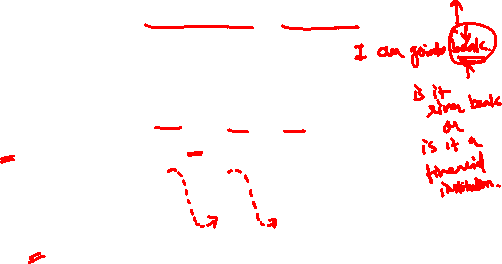 I can gointo bank.
is it
river bank
or
is it a
financial
institution.